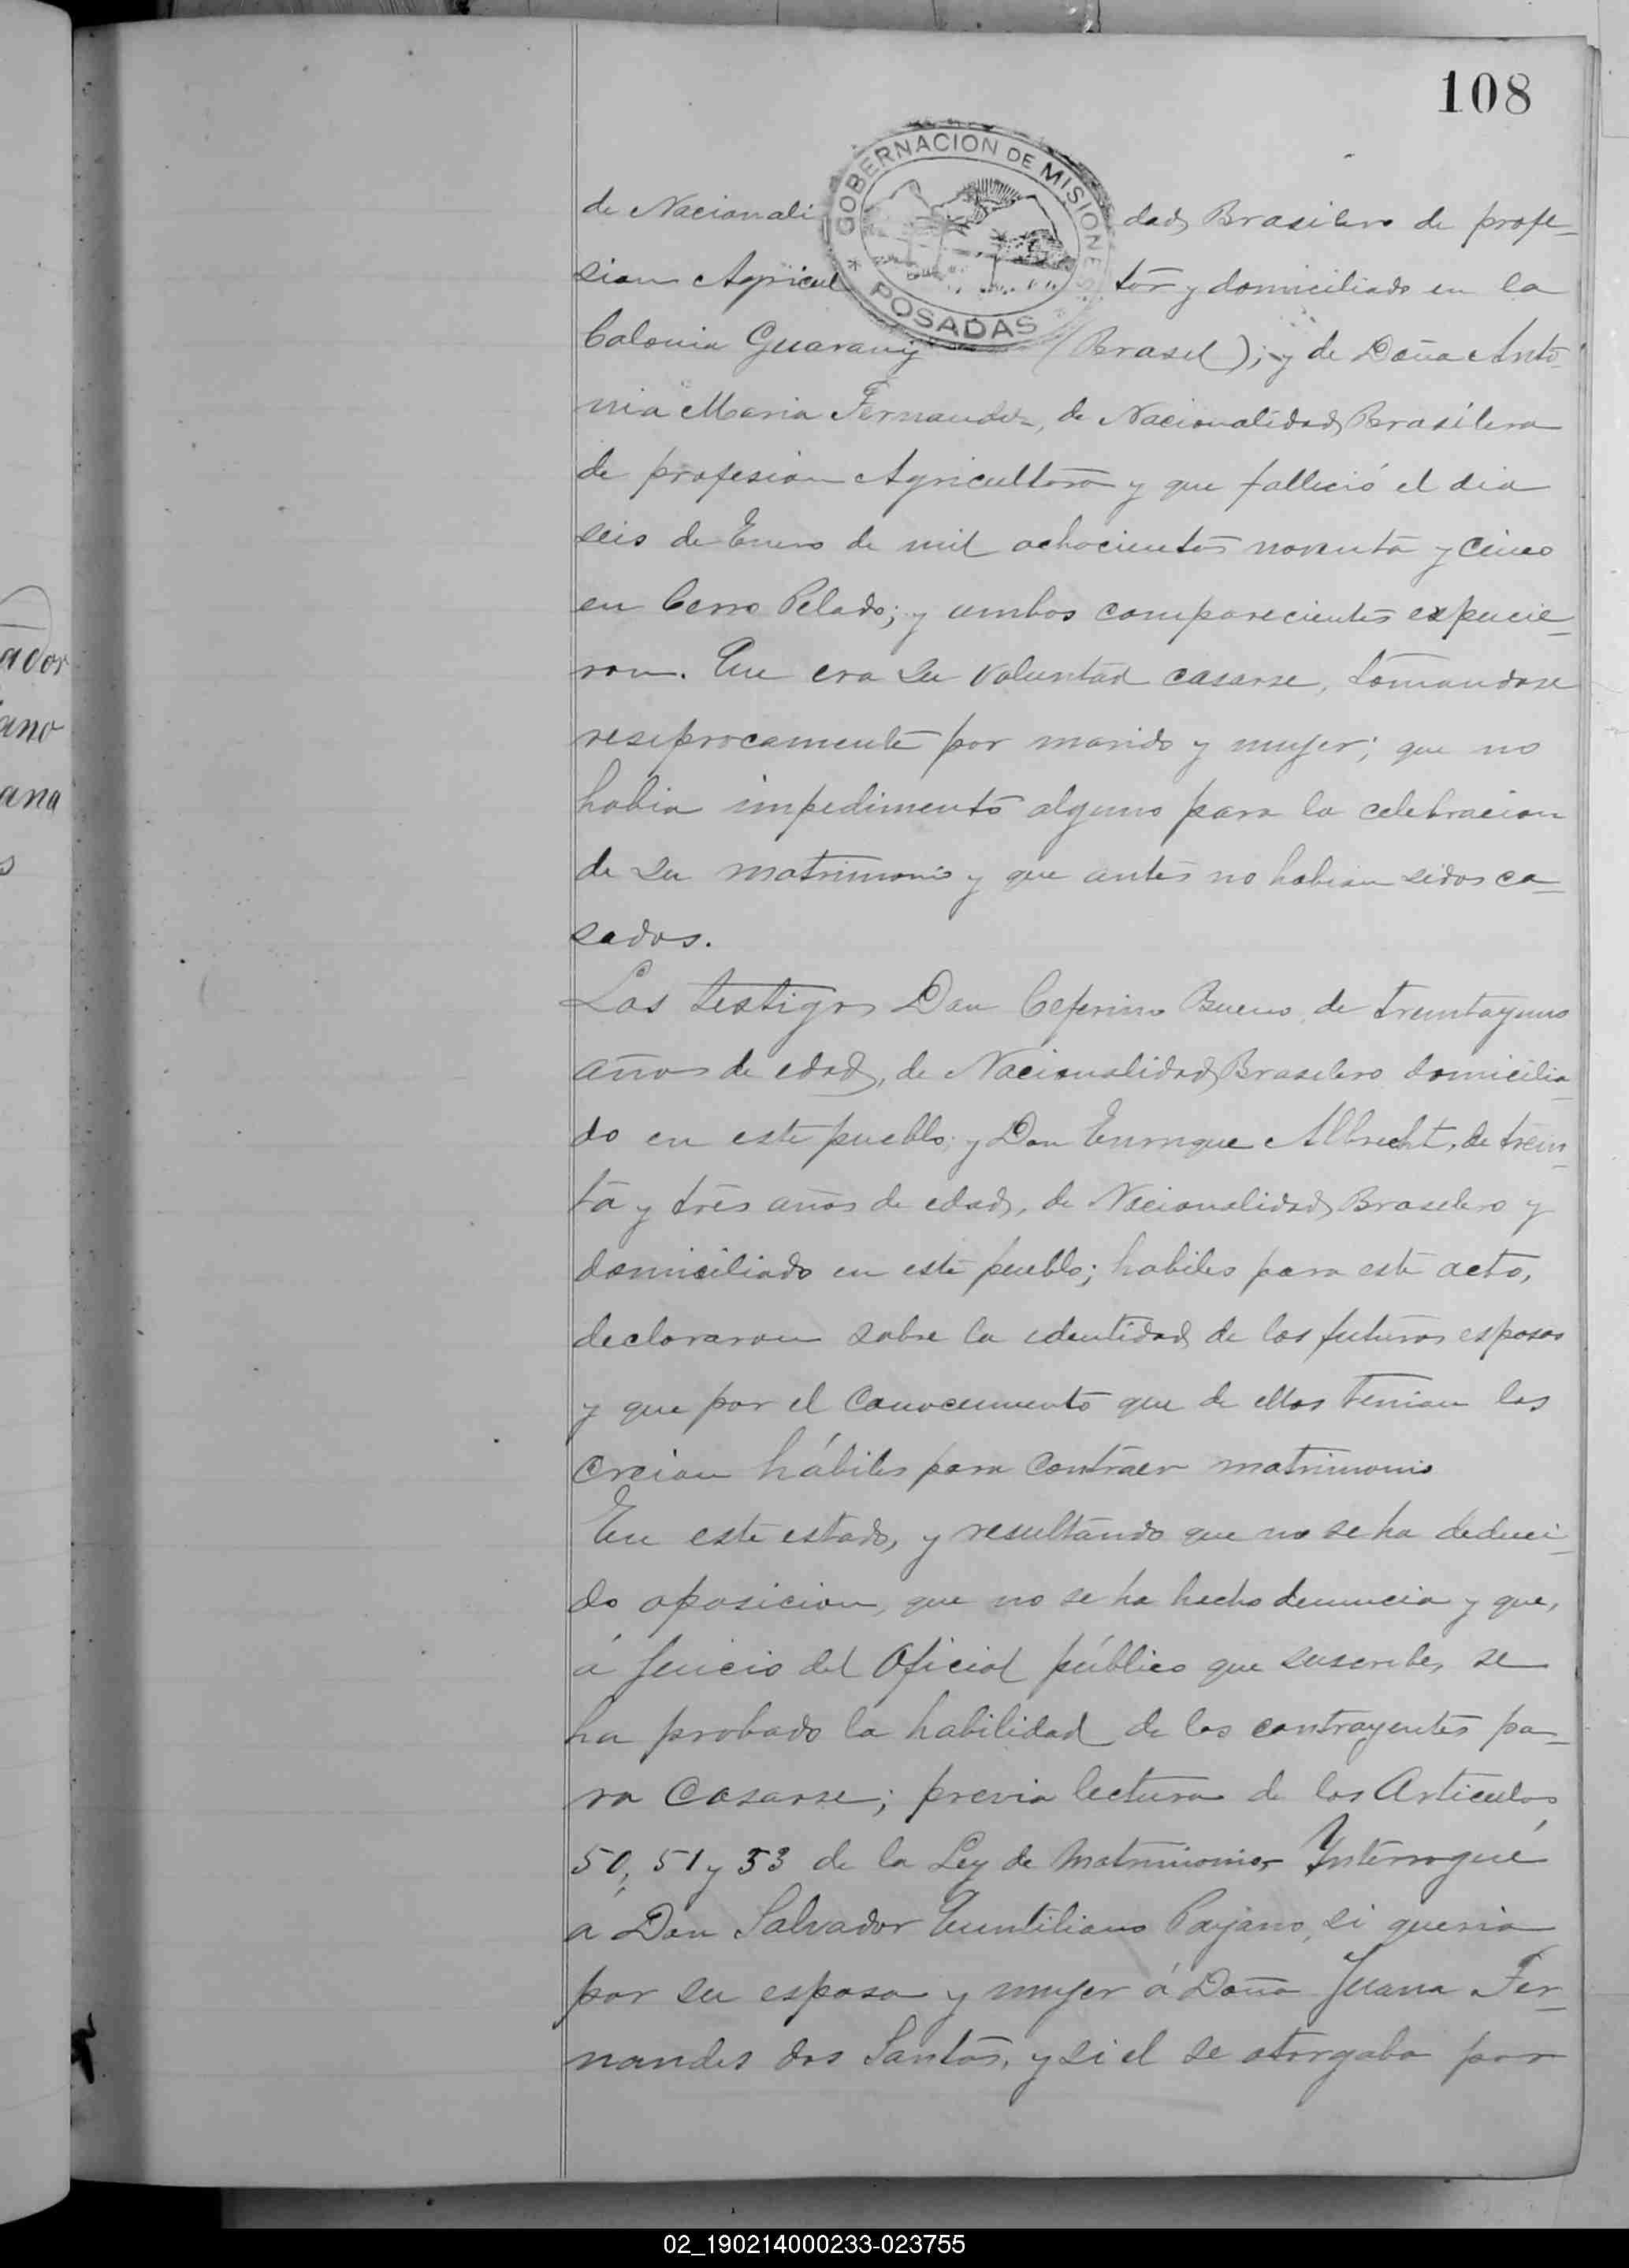 108
GOBERNACION DE MISIONES
* POSADAS *
de Nacionali dad Brasilero de profe-
sion Agricul tor y domiciliado en la
Colonia Guarany (Brasil); y de Doña Anto-
nia Maria Fernandez, de Nacionalidad Brasilera
de profesion Agricultora y que falleció el dia
seis de Enero de mil ochocientos noventa y cinco
en Cerro Pelado; y ambos comparecientes expucie-
ron. Que era su voluntad casarse, tomandose
resiprocamente por marido y mujer; que no
habia impedimento alguno para la celebracion
de su matrimonio y que antes no habian sidos ca-
sados.
Los testigos Don Ceferino Bueno, de treintayuno
años de edad, de Nacionalidad Brasilero domicilia-
do en este pueblo; y Don Enrrique Albrecht, de trein-
ta y tres años de edad, de Nacionalidad Brasilero y
domiciliado en este pueblo; habiles para este acto,
declararon sobre la identidad de los futuros esposos
y que por el conocimiento que de ellos tenian los
creian hábiles para contraer matrimonio
En este estado, y resultando que no se ha deduci-
do oposicion, que no se ha hecho denuncia y que,
á juicio del Oficial público que suscribe, se
ha probado la habilidad de los contrayentes pa-
ra casarse; previa lectura de los Articulos
50, 51 y 53 de la Ley de Matrimonio, Ynterrogué
a Don Salvador Quintiliano Payano, si queria
por su esposa y mujer á Doña Juana Fer-
nandes dos Santos, y si el se otorgaba por
ador
ano
ana
s
02_190214000233-023755